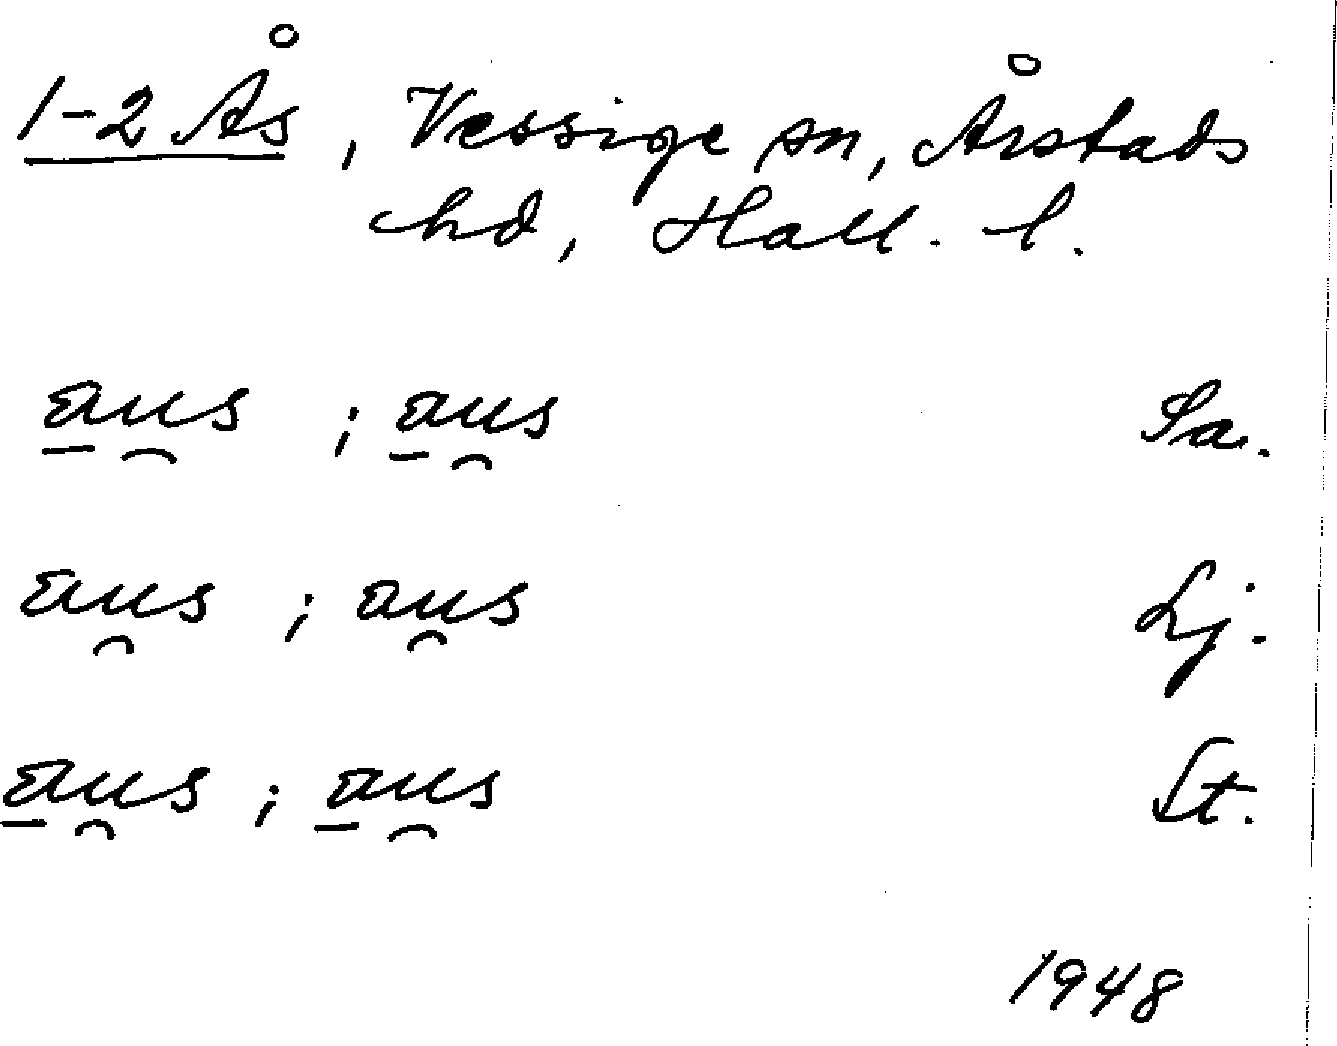 1-2 Ås, Vessige sn, Årstads
hd, Hall. l.
a̲u̯s ; a̲u̯s Sa.
au̯s ; au̯s Lj.
a̲u̯s ; a̲u̯s St.
1948